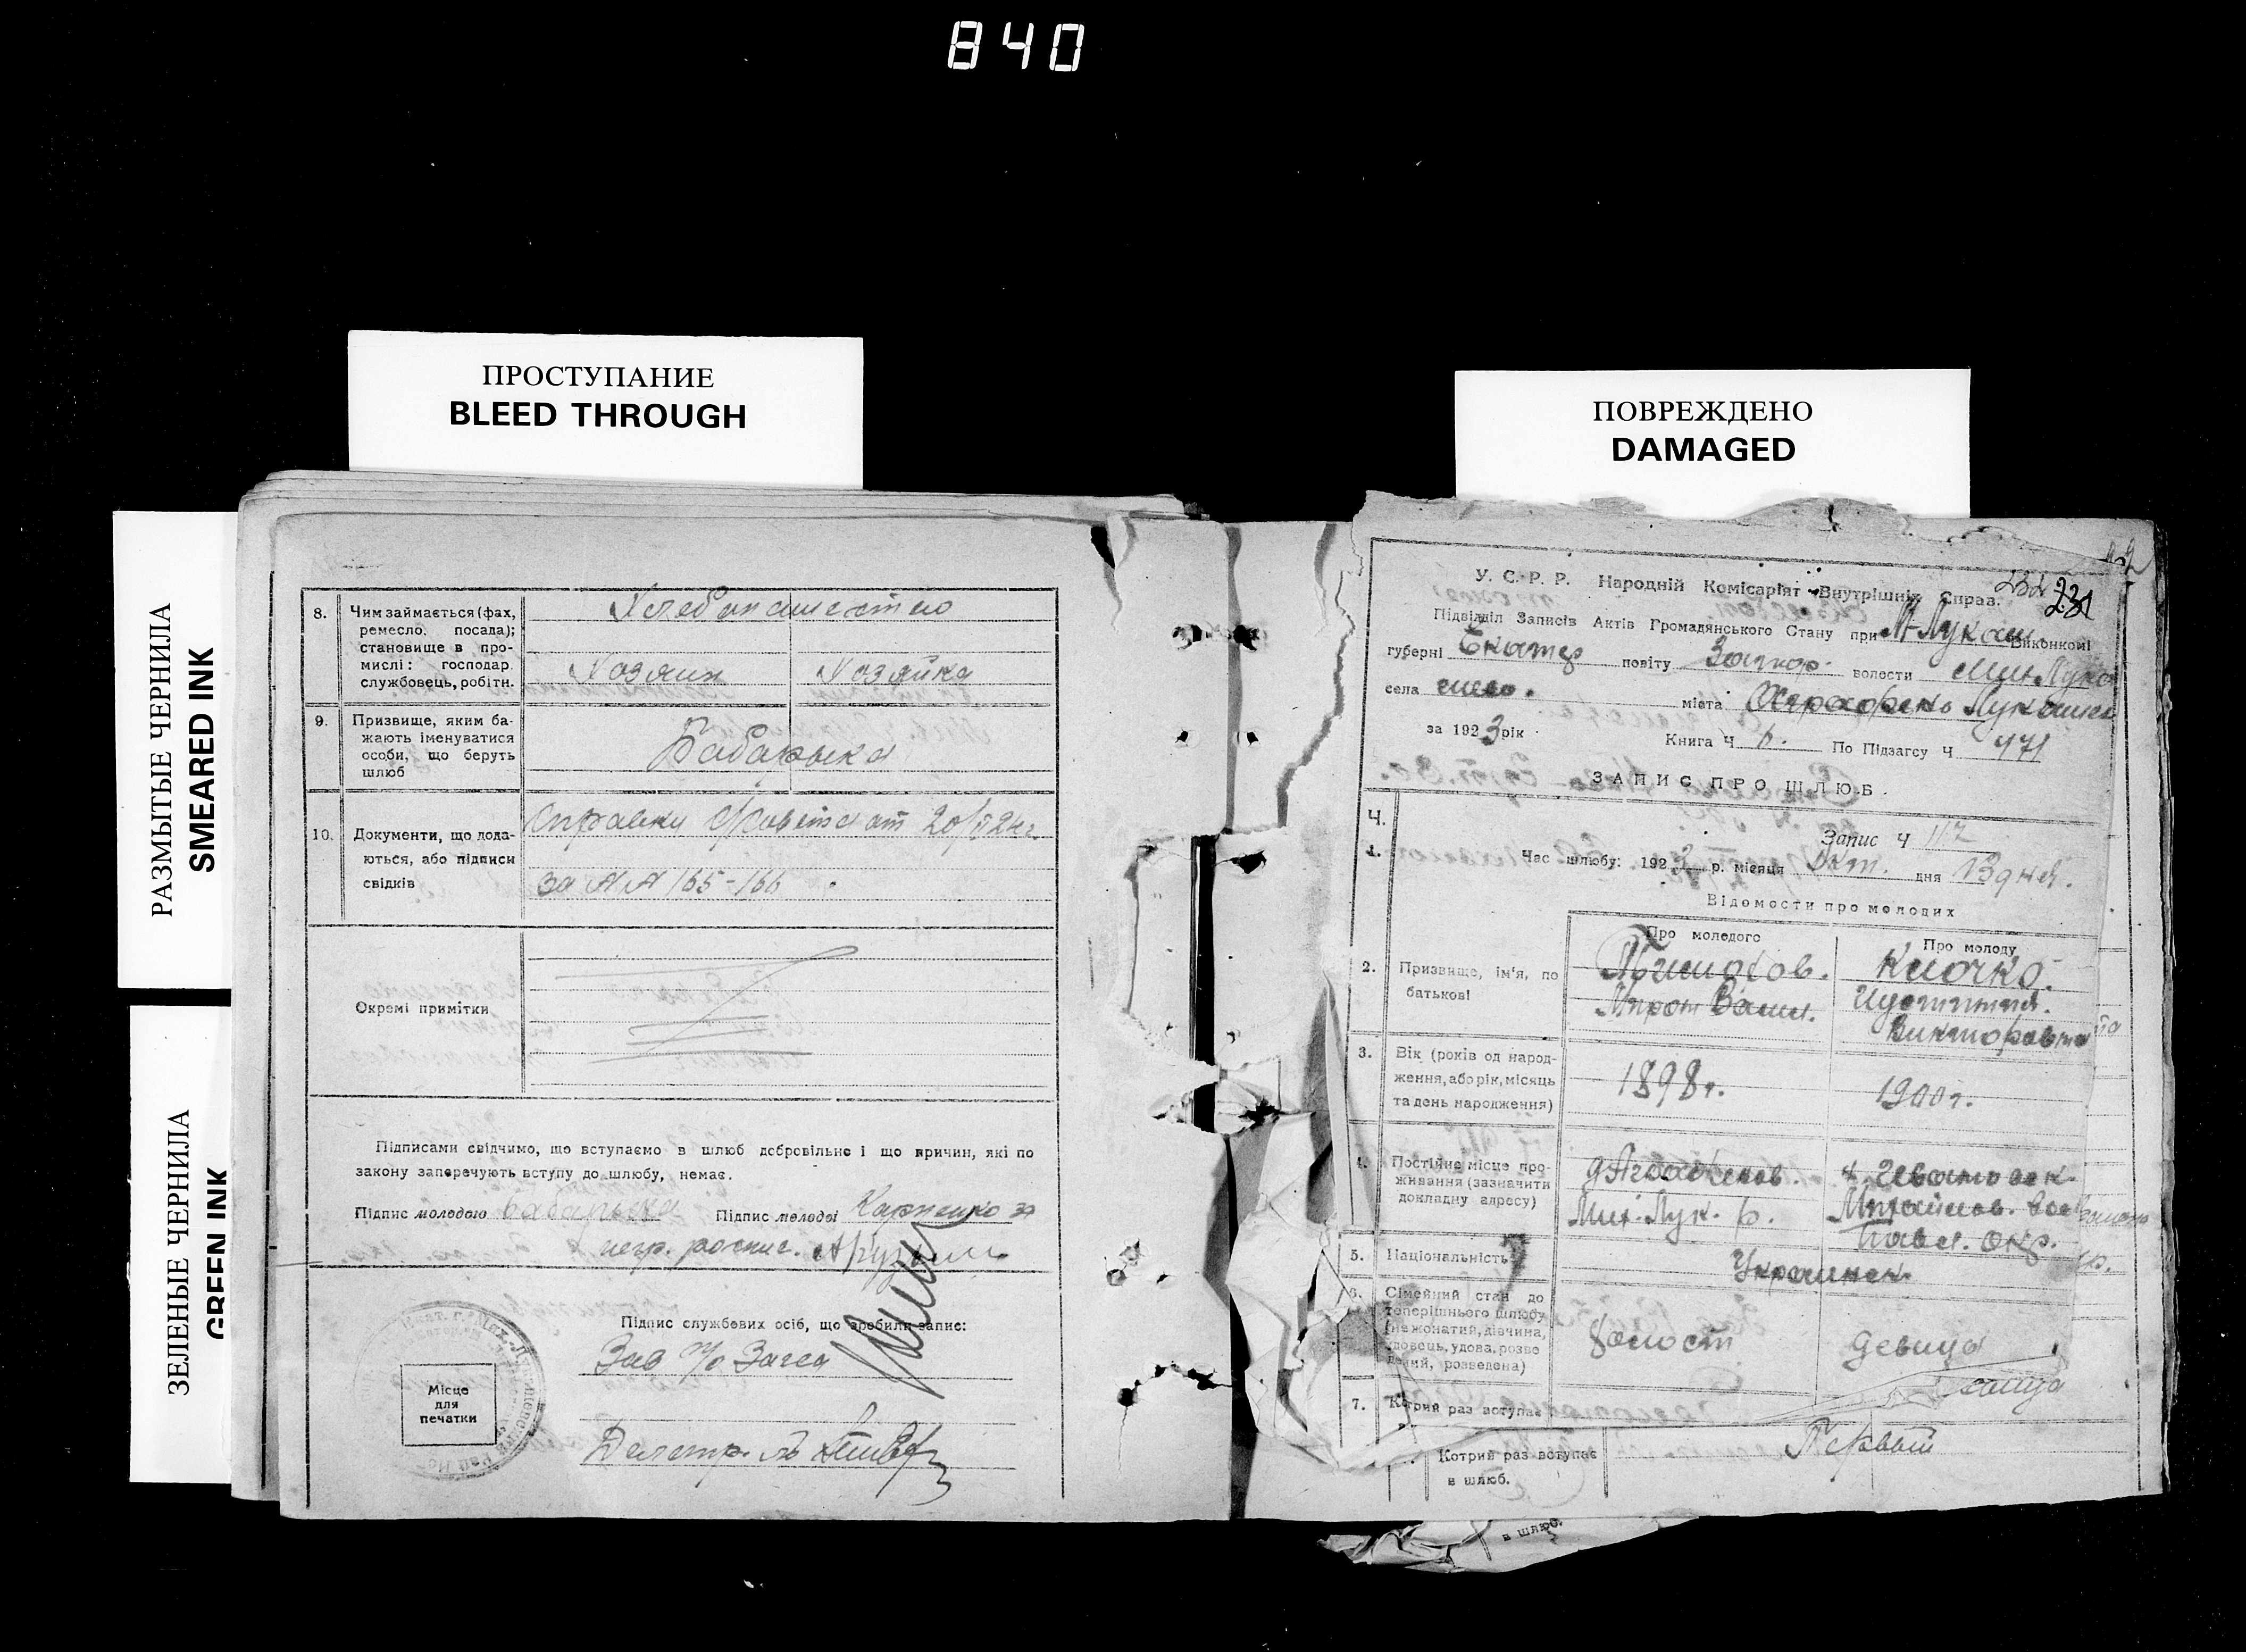 840
ПРОСТУПАНИЕ
BLEED THROUGH
ПОВРЕЖДЕНО
DAMAGED
РАЗМЫТЫЕ ЧЕРНИЛА
SMEARED INK
ЗЕЛЕНЫЕ ЧЕРНИЛА
GREEN INK
8.
Чим займається (фах,
ремесло, посада);
становище в про-
мислі: господар.
службовець, робітн.
Хлебопашество
Хозяин
Хозяйка
9.
Призвище, яким ба-
жають іменуватися
особи, що беруть
шлюб
Бабарыка
10.
Документи, що дода-
ються, або підписи
свідків
Справки от 20/ 24 г
за №№ 165-166
Окремі примітки
Підписами свідчимо, що вступаємо в шлюб добровільно і що причин, які по
закону заперечують вступу до шлюбу, немає.
Підпис молодого Бабарыка Підпис молодої Карпенко за
негр. роспис.
Підпис службових осіб, що зробили запис:
Зав п/о Загса
Місце
для
печатки
231
У. С. Р. Р. Народній Комісаріят Внутрішніх Справ.
Підвідділ Записів Актів Громадянського Стану при М-Лукаш. Виконкомі
губерні Екатер повіту Запор. волости Мих Лука
села міста
за 1923 рік Книга Ч По Підзагсу Ч 471
ЗАПИС ПРО ШЛЮБ.
Ч.
1.
Запис Ч 117
Час шлюбу: 1923 р. місяця Окт. дня 13 дня.
Відомости про молодих
Про молодого
Про молоду
2.
Призвище, ім'я, по
батькові
Мирон Васил.
Клочко.
Викторовна
3.
Вік (років од народ-
ження, або рік, місяць
та день народження)
1898 г.
1900 г.
4.
Постійне місце про-
живання (зазначити
докладну адресу)
Мих. Лук. р.
Павл. Окр.
5.
Національність
Украинск.
6.
Сімейний стан до
теперішнього шлюбу
(нежонатий, дівчина,
вдовець, удова, розве
дений, розведена)
холост
девица
7.
Котрий раз вступає
Котрий раз вступає
в шлюб.
Первый
в шлюб.